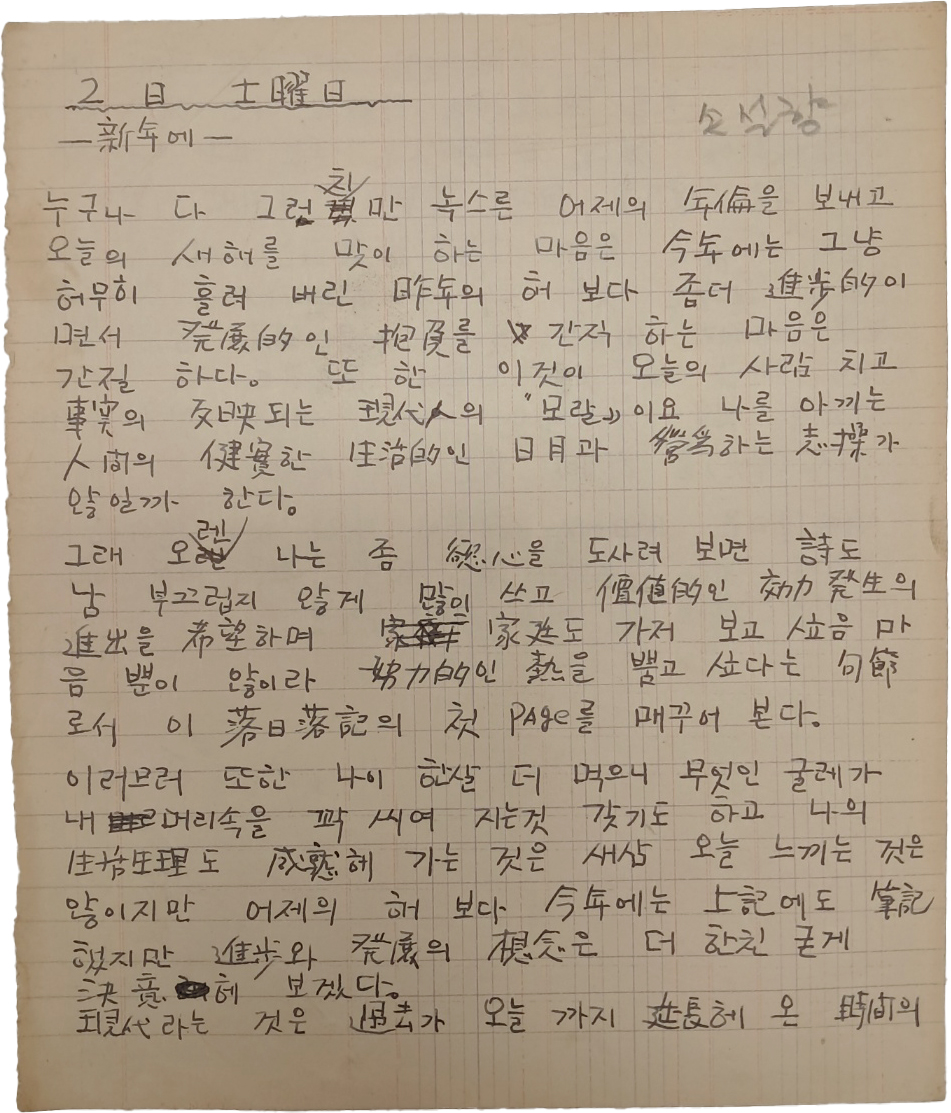 2 日 土曜日
소설항
—新年에—
누구나 다 그런치만 녹스른 어제의 年倫을 보내고
오늘의 새해를 맞이 하는 마음은 今年에는 그냥
허무히 흘려 버린 昨年의 해 보다 좀더 進步的이
면서 発展的인 抱負를 간직 하는 마음은
간절 하다. 또 한 이것이 오늘의 사람 치고
事実의 反映되는 現代人의 "모랄"이요 나를 아끼는
人间의 健實한 生活的인 日月과 營爲하는 志操가
않일까 한다.
그래 오렌 나는 좀 慾心을 도사려 보면 詩도
남 부끄럽지 않게 많이 쓰고 價値的인 効力 發生의
進出을 希望하며 家庭도 가저 보고 싶음 마
음 뿐이 않이라 努力的인 熱을 뿜고 싶다는 句節
로서 이 落日落記의 첫 PAge를 매꾸어 본다.
이러므러 또한 나이 한살 더 먹으니 무엇인 굴레가
내 머리속을 꽉 씨여 지는것 갖기도 하고 나의
生活生理도 感懲해 가는 것은 새삼 오늘 느끼는 것은
않이지만 어제의 해 보다 今年에는 上記에도 筆記
했지만 進步와 発展의 想念은 더 한친 굳게
決意 해 보겠다.
現代라는 것은 過去가 오늘 까지 延長해 온 時间의